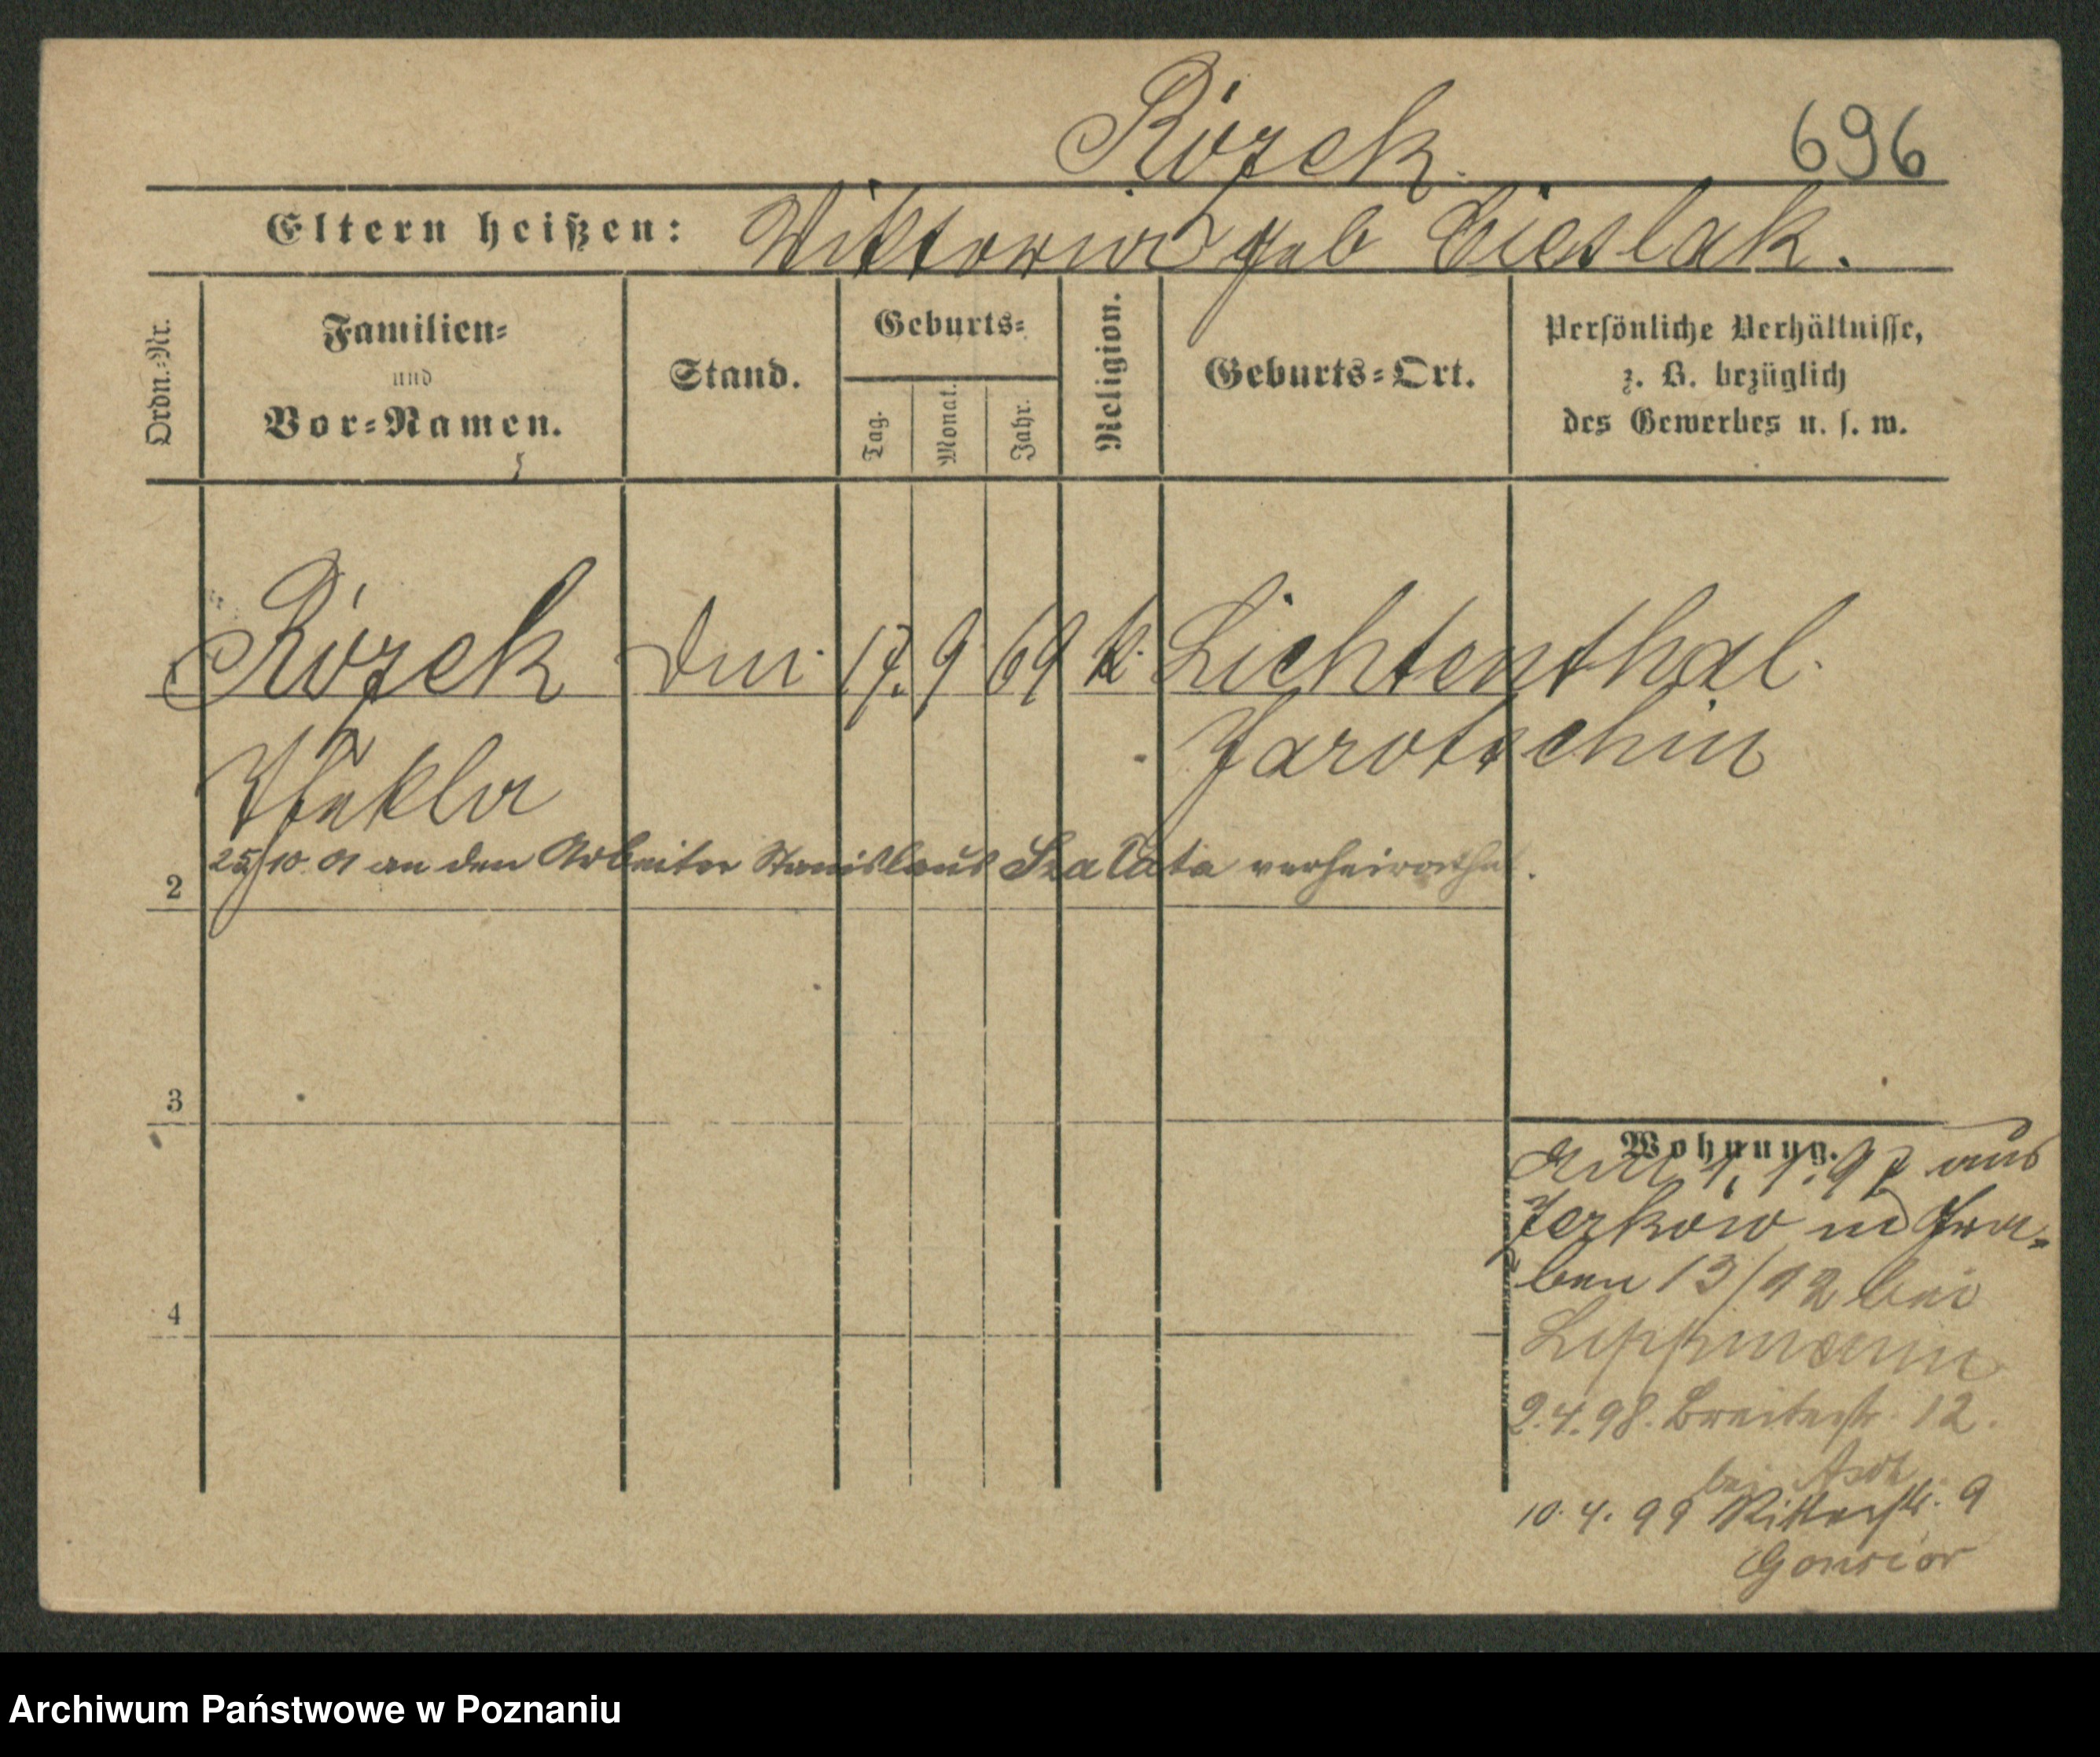 Rózek.
696
Eltern heißen: Viktoria geb Cieslak.
Ordn.-Nr.
Familien-
und
Vor-Namen.
Stand.
Geburts-
Tag.
Monat.
Jahr.
Religion.
Geburts-Ort.
Persönliche Verhältnisse,
z. B. bezüglich
des Gewerbes u. s. w.
Rózek
17. 9 69 k. Lichtenthal.
Jarotschin
Thekla
25/10 01 an den Arbeiter Stanislaus Szalata verheirathet.
2
3
4
Wohnung.
1. 1. 97 aus
Zerkow Gra-
ben 13/12 bei
Lippmann
2.4.98. Breitestr. 12.
bei Asch
10. 4. 99 Ritterstr. 9
Gonsior
Archiwum Państwowe w Poznaniu